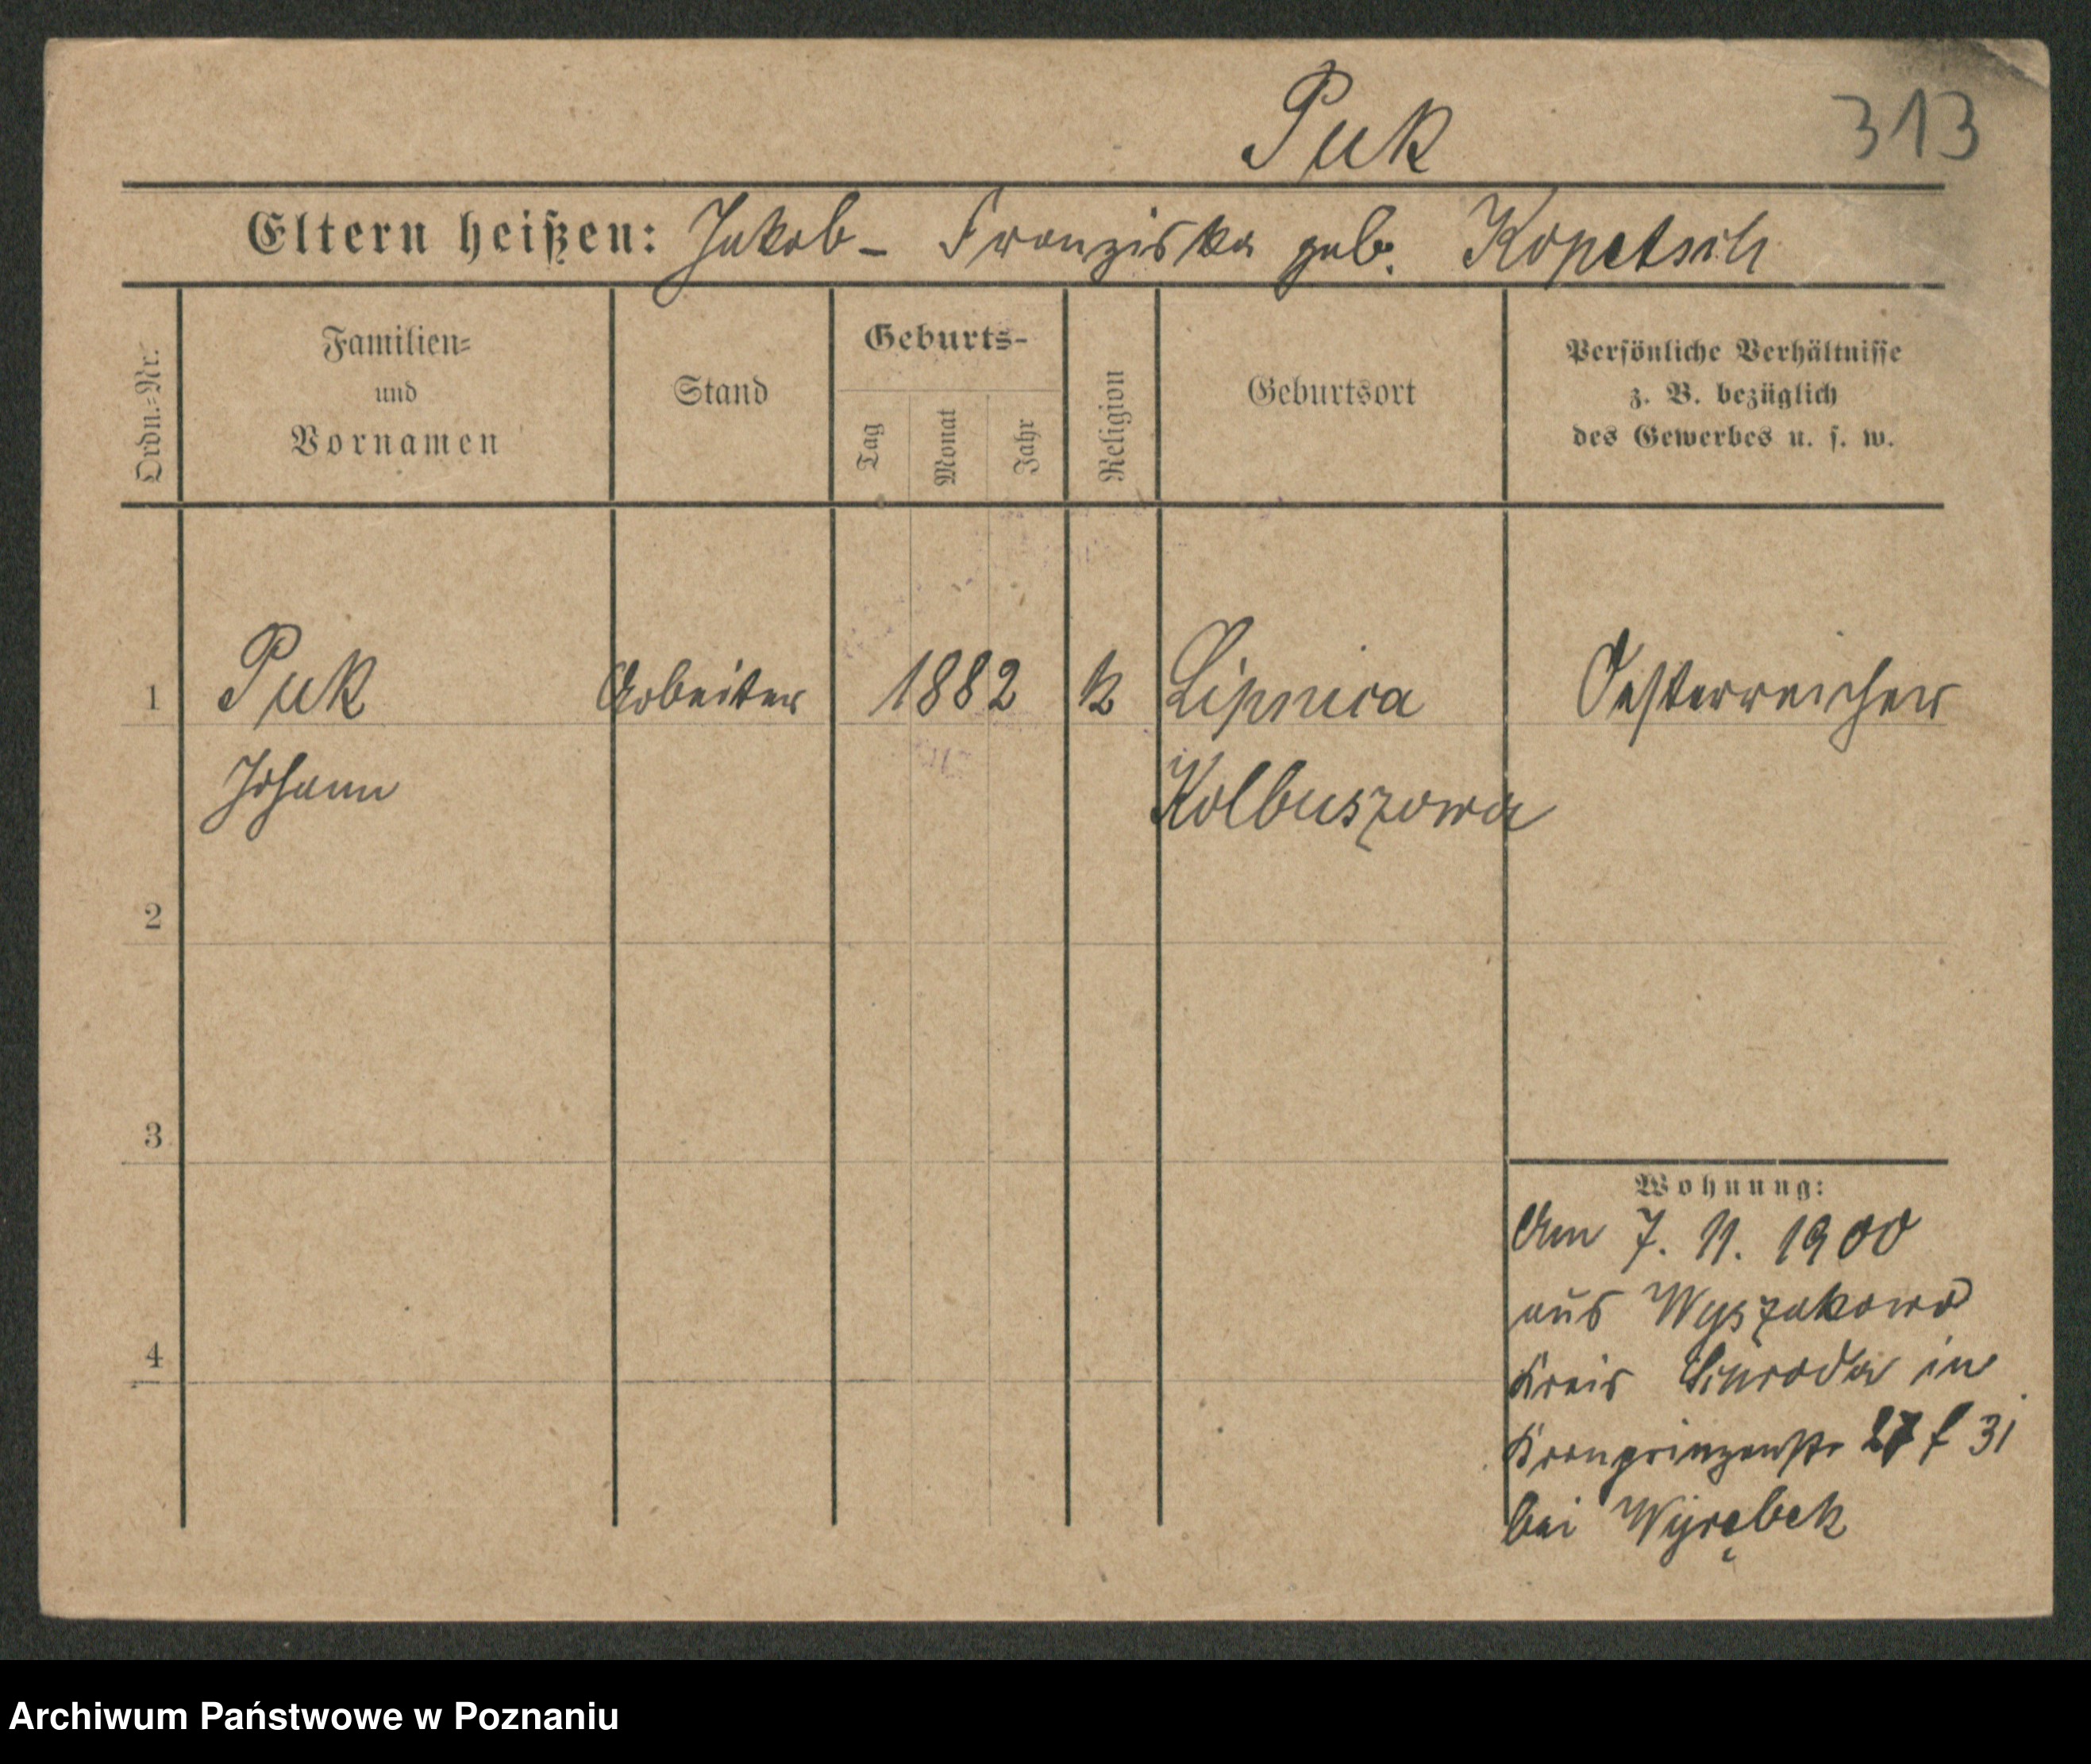 Puk
313
Eltern heißen: Jakob - Franziska geb. Kopetsch
Ordn.=Nr.
Familien=
und
Vornamen
Stand
Geburts-
Tag
Monat
Jahr
Religion
Geburtsort
Persönliche Verhältnisse
z. B. bezüglich
des Gewerbes u. s. w.
1 Puk Arbeiter 1882 k Lipnica Oesterreicher
Johann Kolbuszowa
2
3
4
Wohnung:
Am 7. 11. 1900
aus Wyszakowo
Kreis Schroda in
Kronprinzenstr 27 f 31
bei Wyrębek
Archiwum Państwowe w Poznaniu